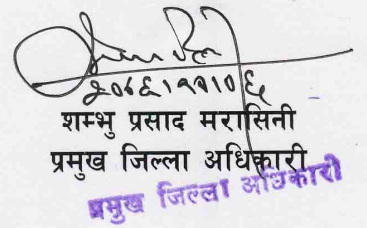 २०७६।११।०६
शम्भु प्रसाद मरासिनी
प्रमुख जिल्ला अधिकारी
प्रमुख जिल्ला अधिकारी